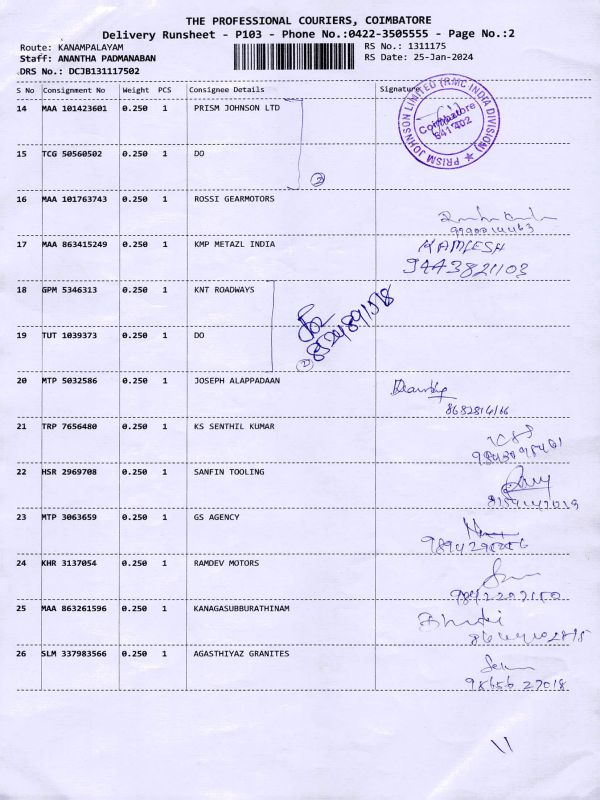 THE PROFESSIONAL COURIERS, COIMBATORE
Delivery Runsheet - P103 - Phone No.:0422-3505555 - Page No.:2
Route: KANAMPALAYAM RS No.: 1311175
Staff: ANANTHA PADMANABAN RS Date: 25-Jan-2024
DRS No.: DCJB131117502
S No Consignment No Weight PCS Consignee Details Signature
PRISM JOHNSON LIMITED (RMC INDIA DIVISION)
Coimbatore
641 402
14 MAA 101423601 0.250 1 PRISM JOHNSON LTD
15 TCG 50560502 0.250 1 DO
2
16 MAA 101763743 0.250 1 ROSSI GEARMOTORS
17 MAA 863415249 0.250 1 KMP METAZL INDIA KAMLESH
9443821103
18 GPM 5346313 0.250 1 KNT ROADWAYS
19 TUT 1039373 0.250 1 DO
2
20 MTP 5032586 0.250 1 JOSEPH ALAPPADAAN
21 TRP 7656480 0.250 1 KS SENTHIL KUMAR
22 HSR 2969708 0.250 1 SANFIN TOOLING
23 MTP 3063659 0.250 1 GS AGENCY
24 KHR 3137054 0.250 1 RAMDEV MOTORS
25 MAA 863261596 0.250 1 KANAGASUBBURATHINAM
26 SLM 337983566 0.250 1 AGASTHIYAZ GRANITES
98656 27018